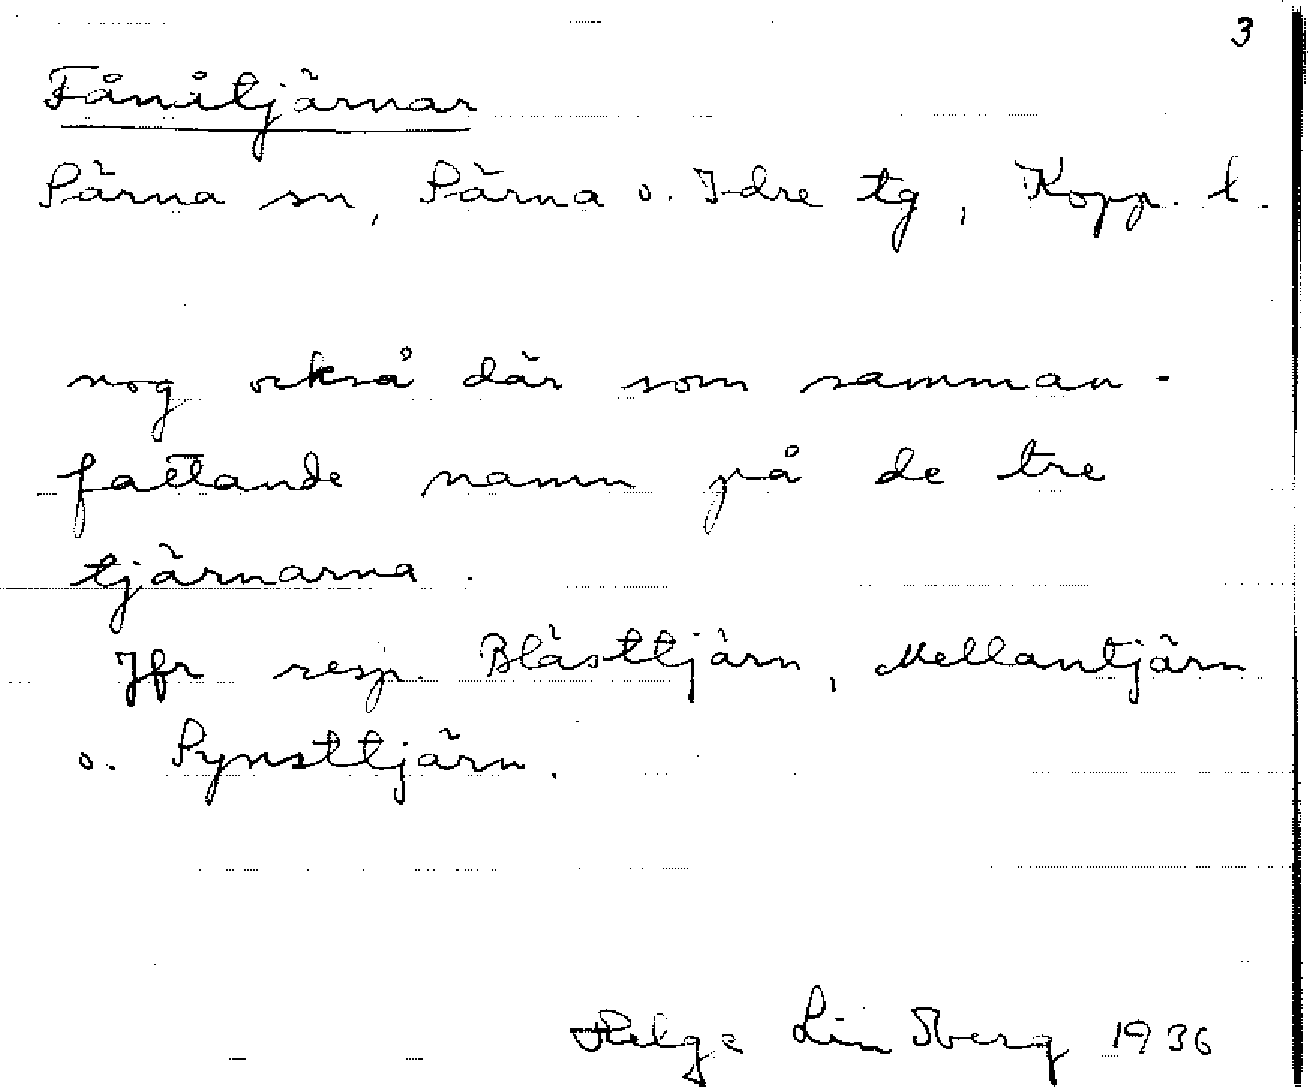 3
Fånåtjärnar
Särna sn, Särna o. Idre tg, Kopp. l.
nog också där som samman-
fattande namn på de tre
tjärnarna.
Jfr resp. Blåsttjärn, Mellantjärn
o. Synsttjärn.
Helge Lindberg 1936